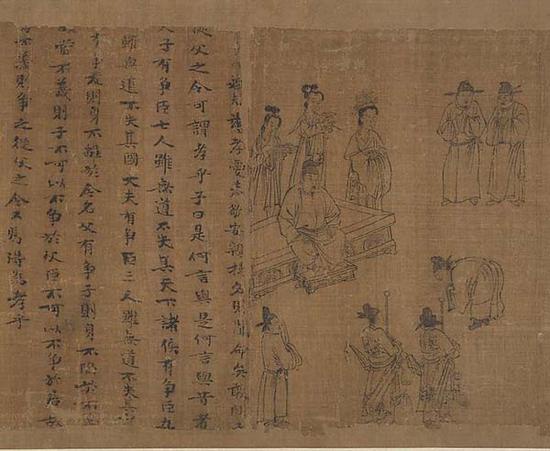 慈愛恭敬安親揚名則聞命矣敢問
從父之令可謂孝乎子曰是何言與是何言與昔者
天子有爭臣七人雖無道不失其天下諸侯有爭臣五
雖無道不失其國大夫有爭臣三人雖無道不失其
士有爭友則身不離於令名父有爭子則身不陷於不
故當不義則子不可以不爭於父臣不可以不爭於君故
當不義則爭之從父之令又焉得為孝乎